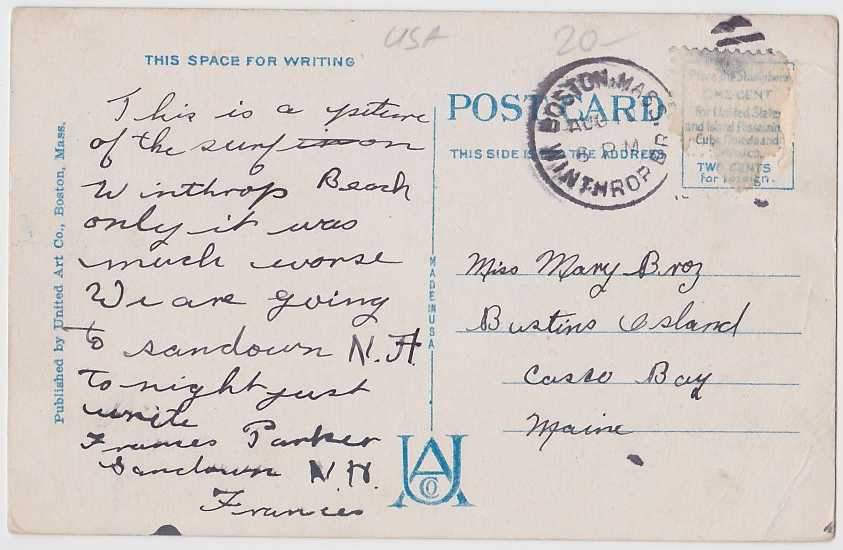 USA
20-
THIS SPACE FOR WRITING
This is a piture
of the surf in on
Winthrop Beach
only it was
much worse
We are going
To sandown N.H.
To night just
write
Frances Parker
Sandown N.H.
Frances
Published by United Art Co., Boston, Mass.
MADE IN USA
UACO
POST CARD
THIS SIDE IS THE ADDRESS
BOSTON, MASS.
AUG
8 PM
WINTHROP BR
Place the Stamp here
ONE CENT
for United States
and Island Possessions
Cuba, Canada and
Mexico.
TWO CENTS
for Foreign.
Miss Mary Broz
Bustins Island
Casco Bay
Maine